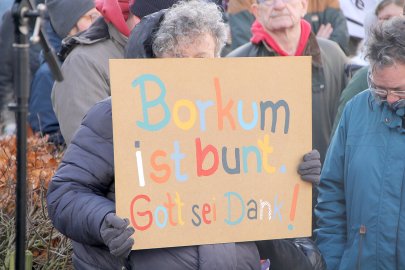 Borkum
ist bunt.
Gott sei Dank!